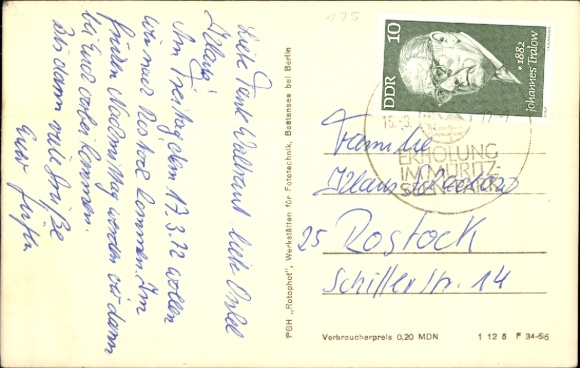 Liebe Tante Waltraut, lieber Onkel
Klaus!
Am Freitag, dem 17.3.72 wollen
wir nach Rostock kommen. Im
frühen Nachmittag werden wir dann
bei Euch vorbei kommen.
Bis dann viele Grüße
Euer
175
PGH „Rotophot", Werkstätten für Fototechnik, Bestensee bei Berlin
DDR 10
* 1882
Johannes Tralow
ERHOLUNG
IM MÜRITZ-
Familie
Klaus
25 Rostock
Schillerstr. 14
Verbraucherpreis 0,20 MDN
1 12 5 F 34-66